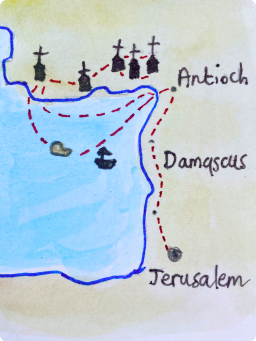 Antioch
Damascus
Jerusalem